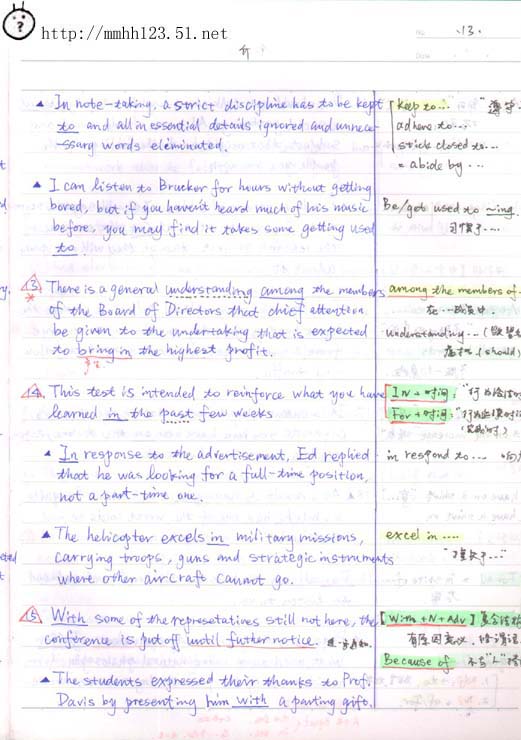 http://mmhh123.51.net
No. 13.
Date
▲ In note-taking, a strict discipline has to be kept
to and all in essential details ignored and unnece-
-ssary words eleminated.
keep to...
adhere to...
stick closed to...
= abide by...
▲ I can listen to Brucker for hours without getting
bored, but if you haven't heard much of his music
before, you may find it takes some getting used
to.
Be/get used to ~ing.
习惯于....
13 There is a general understanding among the members
of the Board of Directors that chief attention
be given to the undertaking that is expected
to bring in the highest profit.
among the members of
在...成员中.
understanding...
(should)
14 This test is intended to reinforce what you have
learned in the past few weeks
IN + 时间:
For + 时间:
▲ In response to the advertisement, Ed replied
that he was looking for a full-time position,
not a part-time one.
in respond to...
▲ The helicopter excels in military missions,
carrying troops, guns and strategic instruments
where other aircraft cannot go.
excel in ....
15 With some of the represetatives still not here, the
conference is put off until futher notice.
[With + N + Adv]
Because of
▲ The students expressed their thanks to Prof.
Davis by presenting him with a parting gift.